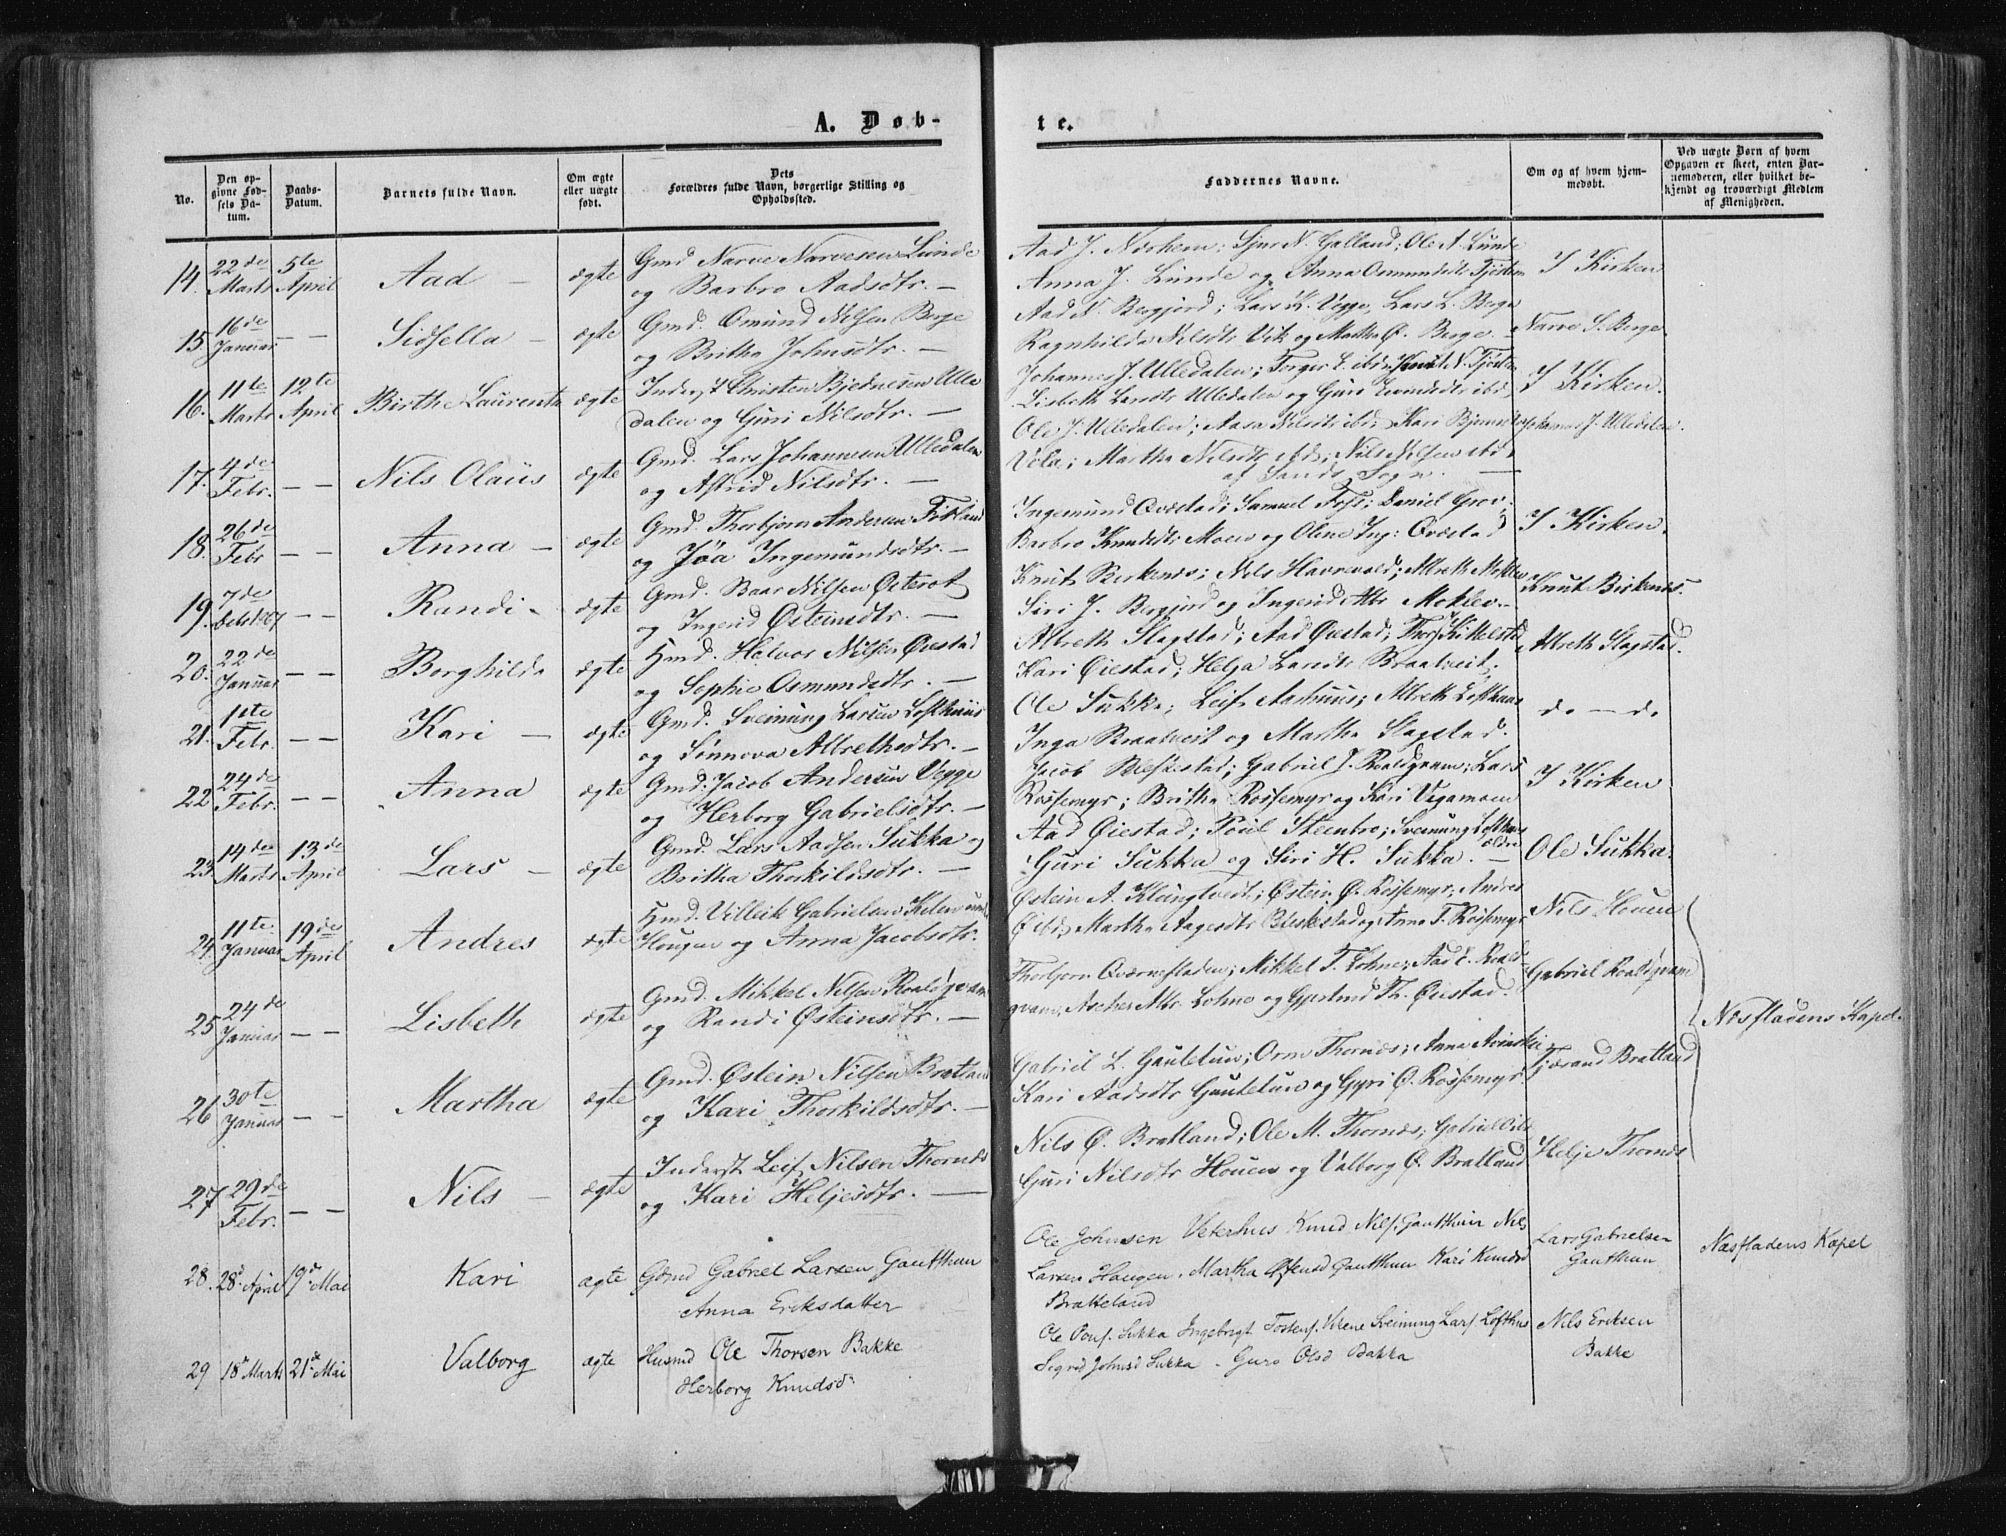 A. Døb-
te.
No.
Den opgivne Fødsels Datum.
Daabs-Datum.
Barnets fulde Navn.
Om ægte eller uægte født.
Dets Forældres fulde Navn, borgerlige Stilling og Opholdssted.
Faddernes Navne.
Om og af hvem hjemmedøbt.
Ved uægte Børn af hvem Opgaven er skeet, enten Barnemoderen, eller hvilket bekjendt og troværdigt Medlem af Menigheden.
14. 22de Marts 5te April Aad — ægte Gmd Narve Narvesen Lunde
og Barbro Aadsdtr. —
Aad J. Nærhem; Sjur N. Galland; Ole A. Lunde
Anna J. Lunde og Anna Osmundsdtr
I Kirken
15 16de Januar — — Sidsella — ægte Gmd. Omund Nilsen Berge
og Britha Johnsdtr. —
Aad N. Bergjord; Lars K. Vegge, Lars L. Berge
Ragnhilda Nilsdtr Vik og Martha Ø. Berge —
Narve S. Berge
16. 11te Marts 12te April Birthe Laurentz ægte Inderst Christen Bjednesen Ulle
dalen og Guri Nilsdtr. —
Johannes J. Ulledalen; Torger L. ibd; Knut N.
Lisbeth Larsdtr Ulledalen og Guri ibd
I Kirken.
17. 4de Febr. — — Nils Olaus ægte Gmd. Lars Johannesen Ulledalen
og Astrid Nilsdtr. —
Ole J. Ulledalen; Aasa Nilsdtr ibd; Kari
Vola; Martha Nilsdtr ibd; Nils Nilsen ibd
af Sands Sogn. —
Johannes J. Ulledalen.
18. 26de Febr — — Anna — ægte Gmd. Thorbjørn Andersen Fitland
og Jøa Ingemundsdtr. —
Ingemund Qvæstad; Samuel Foss; Daniel Grov;
Barbro Knudsdtr Moen og Oline Ing: Qvæstad
I Kirken.
19. 7de — — Randi — ægte Gmd. Baar Nilsen Østerøt
og Ingerid Østeinsdtr. —
Knut Birkenæs; Nils Havrevold; Albreth Moklev
Siri J. Bergjord og Ingerid Albr Moklev. —
Knut Birkenæs.
20. 22de Januar — — Borghilda ægte Hmd. Helvor Nilsen Øiestad
og Sophie Osmundsdtr. —
Albreth Slagstad; Aad Øiestad;
Kari Øiestad; Helga Larsdtr Braatveit.
Albreth Slagstad.
21. 1ste Febr. — — Kari — ægte Gmd. Sveinung Larsen Lofthuus
og Sønnova Albrethsdtr. —
Ole Sukka; Leif Aarhuus; Albreth Lofthuus
Inga Braatveit og Martha Slagstad.
do — do
22. 24de Febr. — — Anna ægte Gmd. Jacob Andersen Vegge
og Herborg Gabrielsdtr. —
Jacob Bleskestad; Gabriel J. Roaldqvam; Lars
Røssemyr; Britha Røssemyr og Kari Vegamoen
I Kirken
23. 14de Marts 13de April Lars — ægte Gmd. Lars Aadsen Sukka og
Britha Thorkildsdtr. —
Aad Øiestad; Poul Steenbro; Sveinung Lofthuus ældre
Guri Sukka og Siri H. Sukka. —
Ole Sukka.
24. 11te Januar 19de April Andres ægte Hmd. Villeik Gabrielsen
Hougen og Anna Jacobsdtr.
Østein A. Klungtveit; Østein Ø. Røssemyr; Andres
Ø ibd; Martha Aagesdtr Bleskestad og Anna T. Røssemyr
Nils Houen
25 24de Januar — — Lisbeth ægte Gmd. Mikkel Nilsen Roaldqvam
og Randi Østeinsdtr. —
Thorbjørn Qværnefladen; Mikkel T. Lohne; Aad E. Roald-
qvam; Ascher Albr. Lohne og Gjertrud Th. Øiestad.
Gabriel Roaldqvam
Næsfladens Kapel.
26 30te Januar — — Martha ægte Gmd. Østein Nilsen Bratland
og Kari Thorkildsdtr. —
Gabriel L. Gautetun; Orm Thornæs; Anna
Kari Aadsdtr Gautetun og Gyri Ø. Røssemyr
Tjærand Bratland
27 29de Febr. — — Nils — ægte Inderst Leif Nilsen Thornæs
og Kari Heljesdtr. —
Nils Ø. Bratland; Ole M. Thornæs; Gabriel ibd
Guri Nilsdtr Houen og Valborg Ø. Bratland
Helje Thornæs
28. 28d April 19d Mai Kari ægte Gmd Gabriel Larsen Gauthun
Anna Eriksdatter
Ole Johnsen Veterhus Knud Nils. Gauthun Nils
Larsen Haugen. Martha Gauthun Kari Knudsd
Bratteland
Lars Gabrielsen
Gauthun
Næsfladens Kapel
29 18d Marts 21de Mai Valborg ægte Husmd Ole Thorsen Bakke
Herborg Knudsdr
Ole Sukka Ingebrigt Tostens. Sveinung Lars Lofthus
Sigrid Johnsd Sukka. Guro Olsd Bakka
Nils Eriksen
Bakke